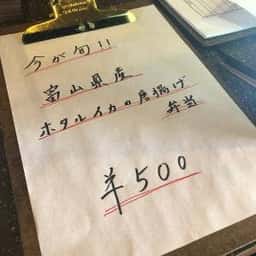 今が旬!!
富山県産
ホタルイカの唐揚げ
弁当
¥500